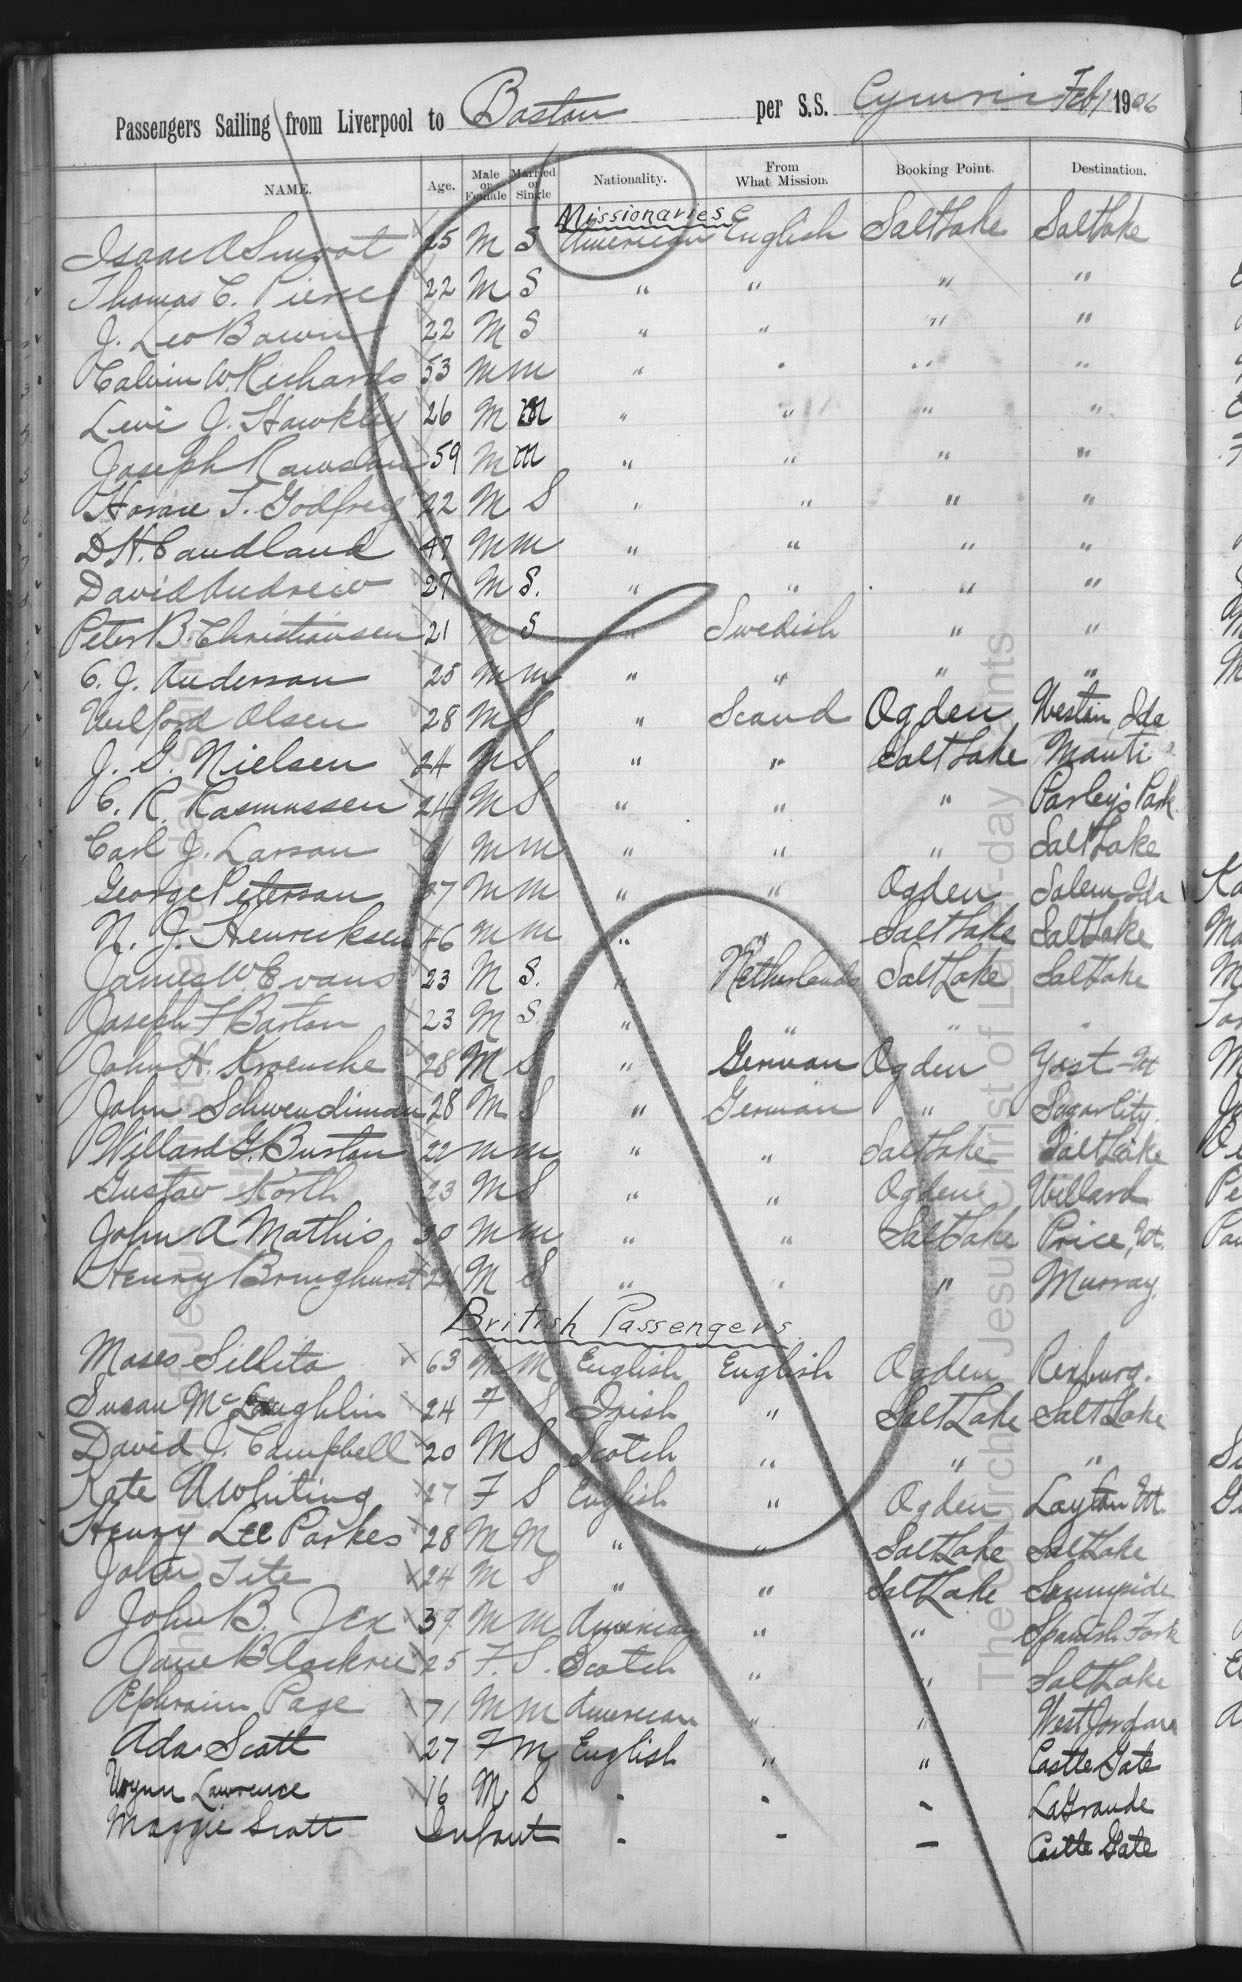 Passengers Sailing from Liverpool to Boston per S.S. Cymric Feb 1 1906
NAME. Age. Male or Female Married or Single Nationality. From What Mission. Booking Point. Destination.
Missionaries
Isaac A Smoot 25 M S American English Salt Lake Salt Lake
Thomas C. Pierce 22 M S " " " "
J. Leo Bawn 22 M S " " " "
Calvin W. Richards 53 M m " " " "
Levi J. Hawkley 26 M m " " " "
Joseph Rawson 59 M m " " " "
Horace T. Godfrey 22 M S " " " "
D H. Candland 47 M m " " " "
David Andrew 27 M S. " " " "
Peter B. Christiansen 21 M S " Swedish " "
C. J. Anderson 25 M m " " " "
Wilford Olsen 28 M S " Scand Ogden Weston, Ida
J. G. Nielsen 24 M S " " Salt Lake Manti
C. R. Rasmussen 24 M S " " " Parley's Park.
Carl J. Larson M m " " " Salt Lake
George Peterson 37 M m " " Ogden Salem Ida
N. J. Henricksen 46 M m " " Salt Lake Salt Lake
James W Evans 23 M S. " Netherlands Salt Lake Salt Lake
Joseph F Barton 23 M S. " " " "
John H. Kroencke 28 M S " German Ogden Yost - Ut
John Schwendiman 28 M S " German " Sugar City
Willard G. Burton 22 m m " " Salt Lake Salt Lake
Gustav Korth 23 M S " " Ogden Willard
John A Mathis 30 M m " " Salt Lake Price, Ut.
Henry Bringhurst 21 M S " " " Murray.
British Passengers
Moses Sillito 63 M M English English Ogden Rexburg.
Susan McLaughlin 24 F S Irish " Salt Lake Salt Lake
David J. Campbell 20 M S Scotch " " "
Kate A Whiting 27 F S English " Ogden Layton Ut.
Henry Lee Parkes 28 M M " " Salt Lake Salt Lake
John Tite 24 M S " " Salt Lake Sunnyside
John B. Jex 39 M m American " " Spanish Fork
Jane Blackrie 25 F. S. Scotch " " Salt Lake
Ephraim Page 71 M m American " " West Jordan
Ada Scott 27 F M English " " Castle Gate
Wynn Lawrence 16 M S - - - LaGrande
Maggie Scott Infant - - - Castle Gate